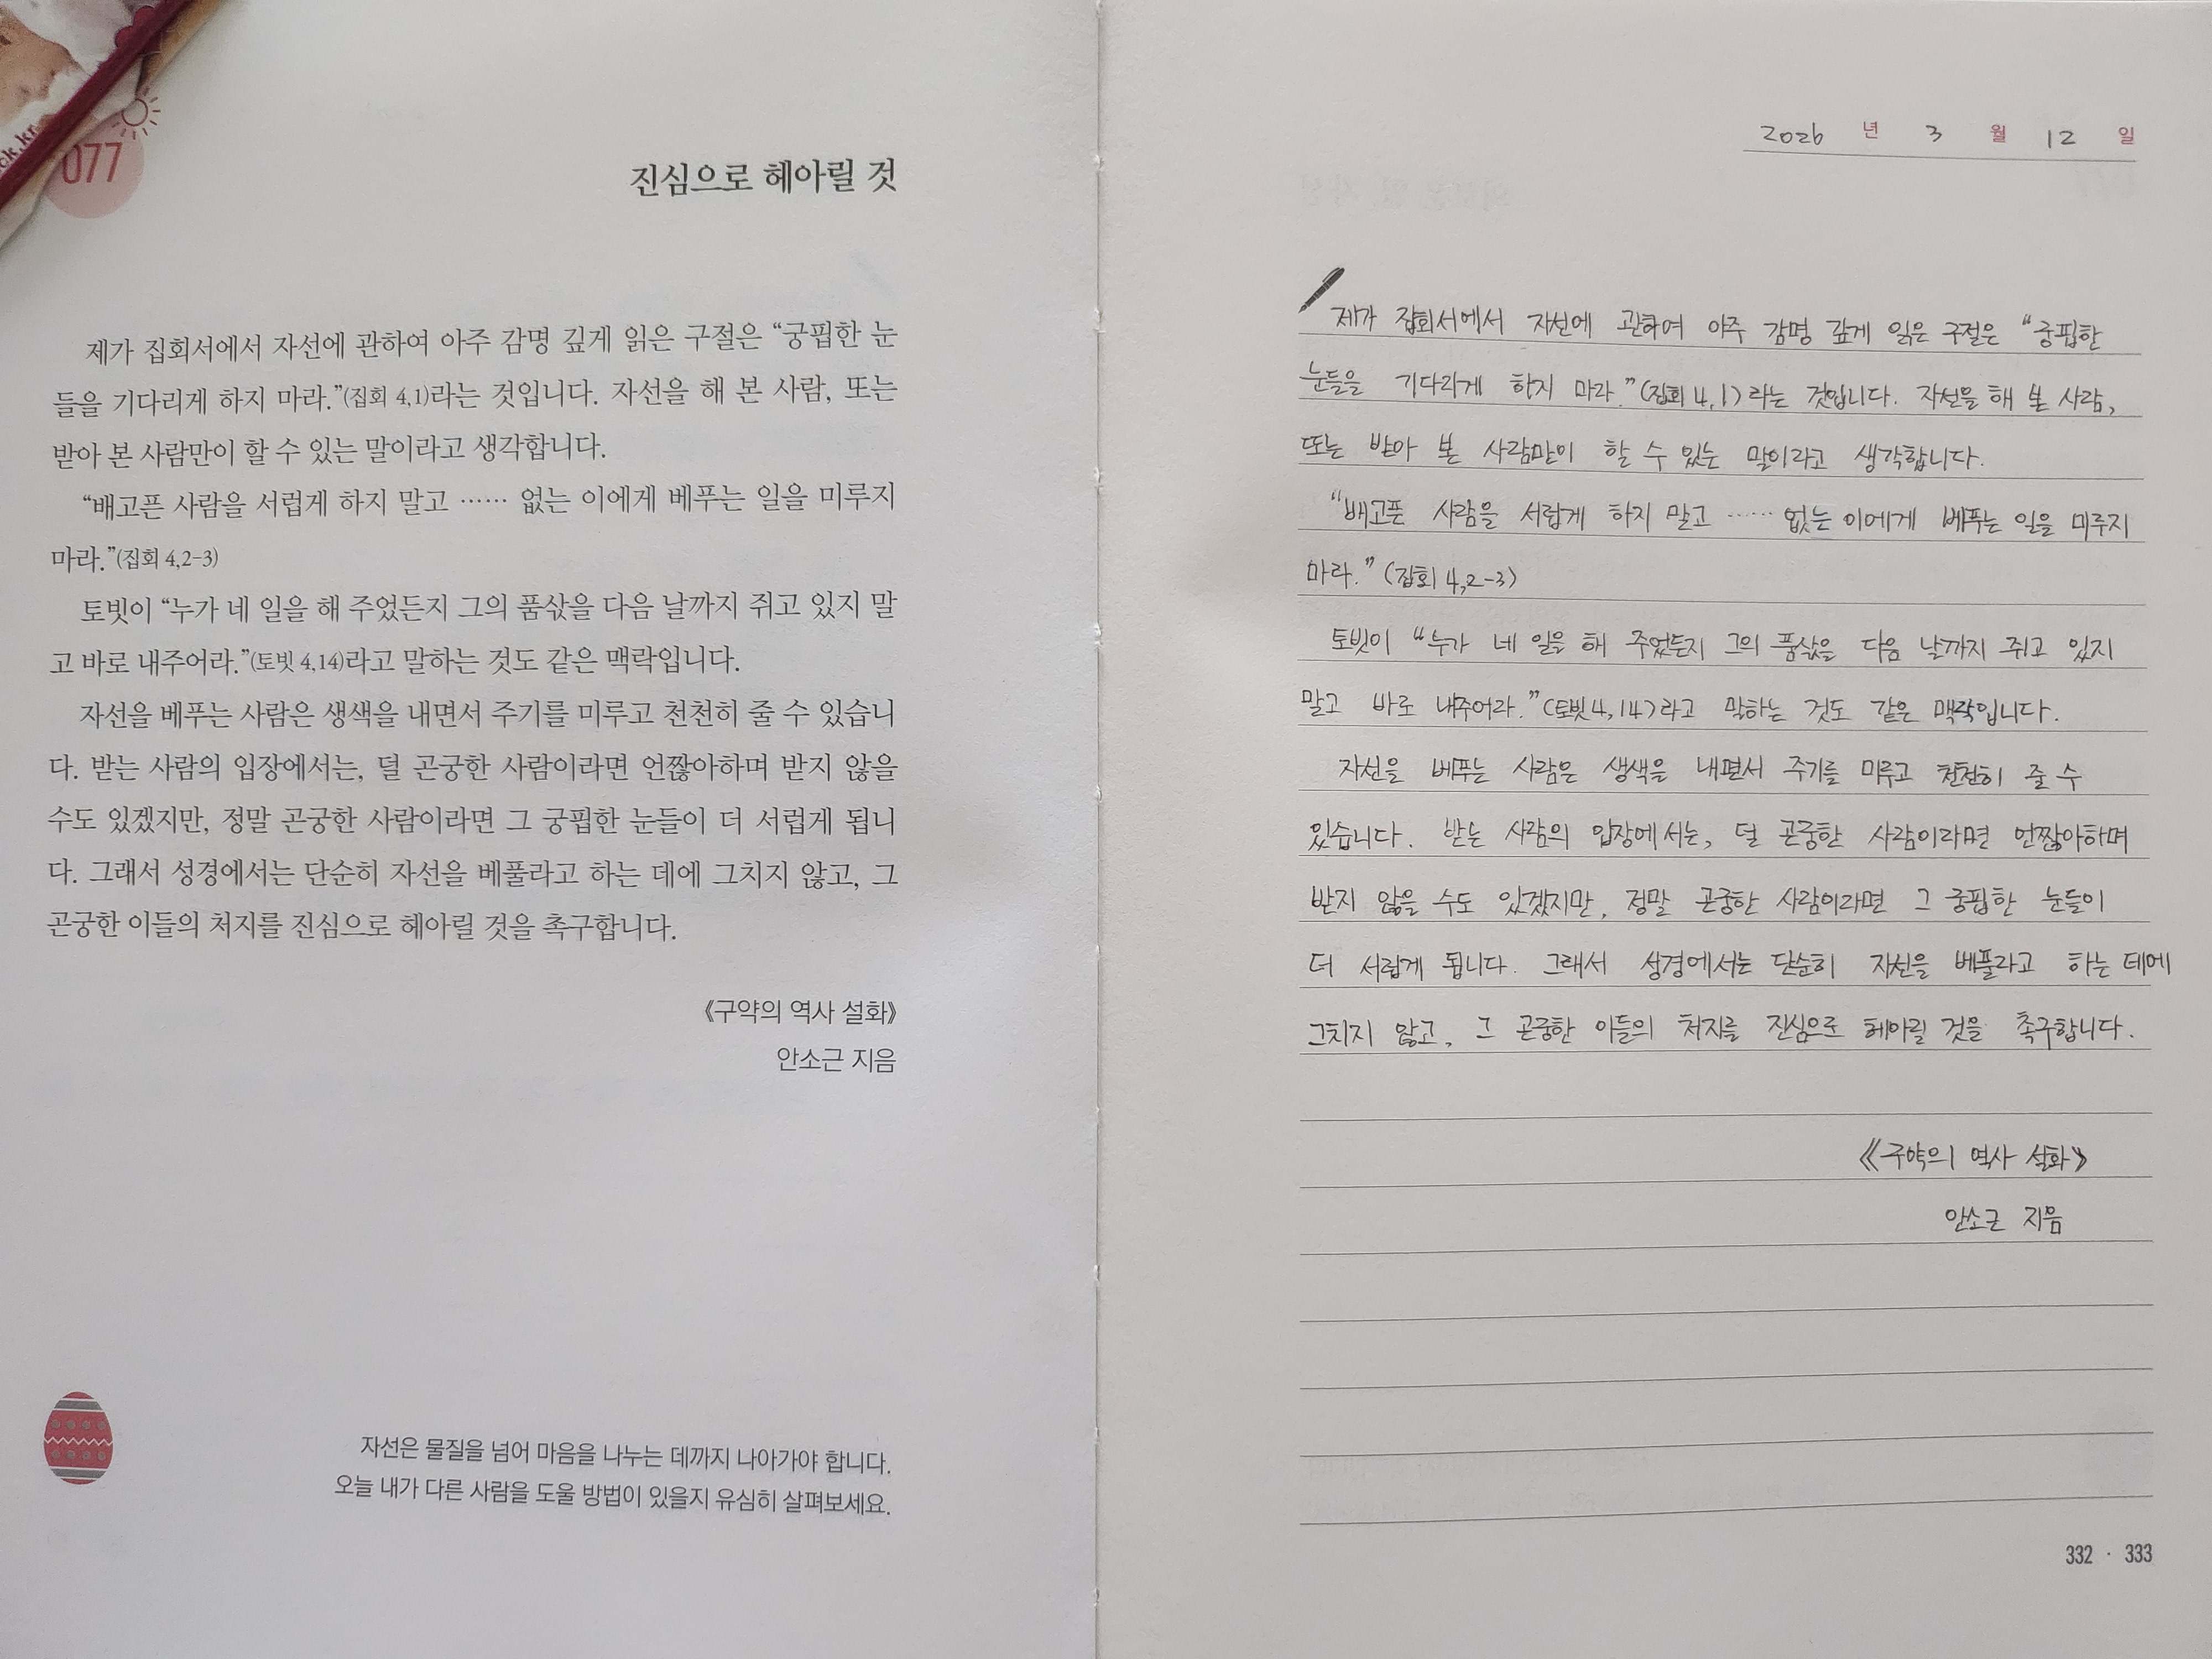 ck.kr
077
진심으로 헤아릴 것
제가 집회서에서 자선에 관하여 아주 감명 깊게 읽은 구절은 “궁핍한 눈
들을 기다리게 하지 마라.”(집회 4,1)라는 것입니다. 자선을 해 본 사람, 또는
받아 본 사람만이 할 수 있는 말이라고 생각합니다.
“배고픈 사람을 서럽게 하지 말고 …… 없는 이에게 베푸는 일을 미루지
마라.”(집회 4,2-3)
토빗이 “누가 네 일을 해 주었든지 그의 품삯을 다음 날까지 쥐고 있지 말
고 바로 내주어라.”(토빗 4,14)라고 말하는 것도 같은 맥락입니다.
자선을 베푸는 사람은 생색을 내면서 주기를 미루고 천천히 줄 수 있습니
다. 받는 사람의 입장에서는, 덜 곤궁한 사람이라면 언짢아하며 받지 않을
수도 있겠지만, 정말 곤궁한 사람이라면 그 궁핍한 눈들이 더 서럽게 됩니
다. 그래서 성경에서는 단순히 자선을 베풀라고 하는 데에 그치지 않고, 그
곤궁한 이들의 처지를 진심으로 헤아릴 것을 촉구합니다.
《구약의 역사 설화》
안소근 지음
자선은 물질을 넘어 마음을 나누는 데까지 나아가야 합니다.
오늘 내가 다른 사람을 도울 방법이 있을지 유심히 살펴보세요.
2026 년 3 월 12 일
제가 집회서에서 자선에 관하여 아주 감명 깊게 읽은 구절은 “궁핍한
눈들을 기다리게 하지 마라.”(집회 4,1)라는 것입니다. 자선을 해 본 사람,
또는 받아 본 사람만이 할 수 있는 말이라고 생각합니다.
“배고픈 사람을 서럽게 하지 말고 …… 없는 이에게 베푸는 일을 미루지
마라.”(집회 4,2-3)
토빗이 “누가 네 일을 해 주었든지 그의 품삯을 다음 날까지 쥐고 있지
말고 바로 내주어라.”(토빗 4,14)라고 말하는 것도 같은 맥락입니다.
자선을 베푸는 사람은 생색을 내면서 주기를 미루고 천천히 줄 수
있습니다. 받는 사람의 입장에서는, 덜 곤궁한 사람이라면 언짢아하며
받지 않을 수도 있겠지만, 정말 곤궁한 사람이라면 그 궁핍한 눈들이
더 서럽게 됩니다. 그래서 성경에서는 단순히 자선을 베풀라고 하는 데에
그치지 않고, 그 곤궁한 이들의 처지를 진심으로 헤아릴 것을 촉구합니다.
《구약의 역사 설화》
안소근 지음
332 · 333